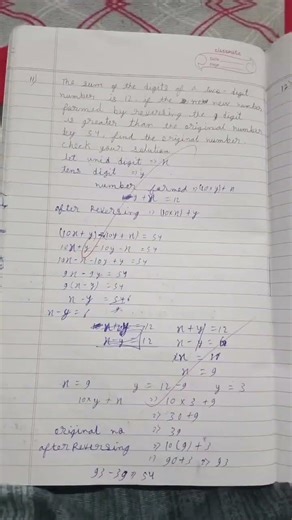 The sum of the digits of a two-digit
number is 12 if the new number
formed by reversing the digit
is greater than the original number
by 54. find the original number.
Check your solution
let unit digit = x
tens digit = y
number formed = (10y) + x
y + x = 12
after Reversing = (10x) + y
(10x + y) - (10y + x) = 54
10x + y - 10y - x = 54
10x - x - 10y + y = 54
9x - 9y = 54
9(x - y) = 54
x - y = 54 6
9
x - y = 6
x + y = 12 x + y = 12
x - y = 12 x - y = 6
x = 9
x = 9 y = 12 - 9 y = 3
10 x y + x 10 x 3 + 9
30 + 9
original no 39
after Reversing 10(9) + 3
90 + 3 = 93
93 - 39 = 54